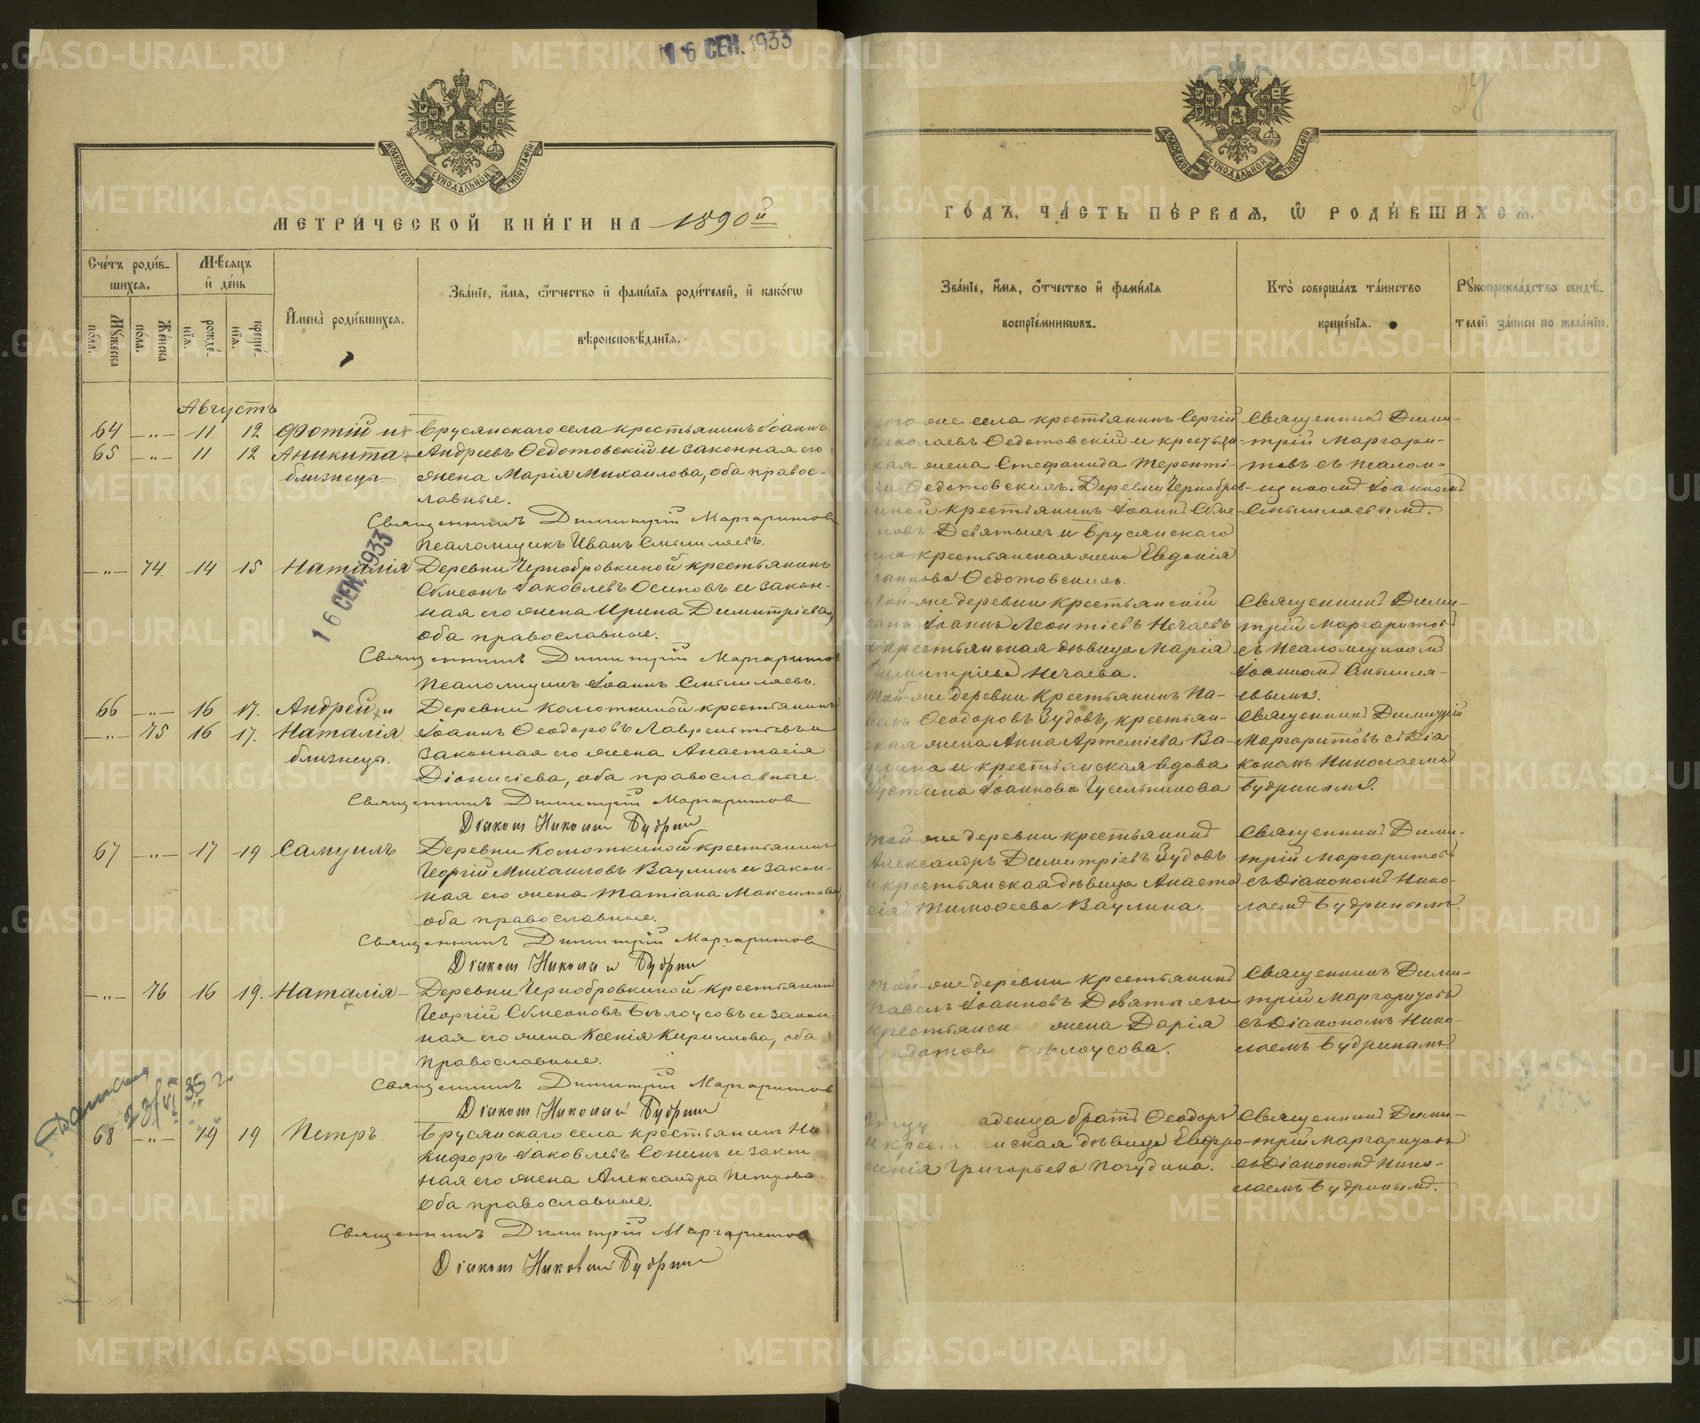 16 СЕН. 1933
МОСКОВСКОЙ СѴНОДАЛЬНОЙ ТИПОГРАФІИ
МЕТРИ́ЧЕСКОЙ КНИ́ГИ НА 1890й
Сче́тъ роди́в-
шихсѧ.
Мѣ́сѧцъ
и҆ де́нь
Мꙋ́жеска по́ла.
Же́нска по́ла.
рожде́-нїѧ.
креще́-нїѧ.
И҆мена̀ роди́вшихсѧ.
Зва́нїе, и҆́мѧ, ѻ҆́тчество и҆ фами́лїѧ роди́телей, и҆ како́гѡ
вѣроисповѣ́данїѧ.
Августъ
64 -"- 11 12 Фотій и Брусянскаго села крестьянинъ Іоаннъ
65 -"- 11 12 Аникита Андреевъ Ѳедотовскій и законная его
близнецы жена Марія Михаилова, оба правос-
лавные.
Священникъ Димитрій Маргаритовъ
Псаломщикъ Иванъ
16 СЕН. 1933
-"- 74 14 15 Наталія Деревни Чернобровкиной крестьянинъ
Сѵмеонъ Іаковлевъ Осиповъ и закон-
ная его жена Ирина Димитріева,
оба православные.
Священникъ Димитрій Маргаритовъ
Псаломщикъ Іоаннъ
66 -"- 16 17. Андрей и Деревни Колоткиной крестьянинъ
-"- 75 16 17. Наталія Іоаннъ Ѳеодоровъ Лаврентьевъ и
близнецы. законная его жена Анастасія
Діонисіева, оба православные.
Священникъ Димитрій Маргаритовъ
Діаконъ Николай Будринъ
67 -"- 17 19 Самуилъ Деревни Колоткиной крестьянинъ
Георгій Михаиловъ Ваулинъ и закон-
ная его жена Татіана Максимова
оба православные.
Священникъ Димитрій Маргаритовъ
Діаконъ Николай Будринъ
-"- 76 16 19. Наталія Деревни Чернобровкиной крестьянинъ
Георгій Сѵмеоновъ Бѣлоусовъ и закон-
ная его жена Ксенія Кириллова, оба
православные.
Священникъ Димитрій Маргаритовъ
Діаконъ Николай Будринъ
68 -"- 19 19 Петръ Брусянскаго села крестьянинъ Ни-
кифоръ Іаковлевъ Сонинъ и закон
ная его жена Александра Петрова
Оба православные.
Священникъ Димитрій Маргаритовъ
Діаконъ Николай Будринъ
ГО́ДЪ, ЧА́СТЬ ПЕ́РВАѦ, Ѽ РОДИ́ВШИХСѦ.
Зва́нїе, и҆́мѧ, ѻ҆́тчество и҆ фами́лїѧ
воспрїе́мникѡвъ.
Кто̀ соверша́лъ та́инство
креще́нїѧ.
Рꙋкоприкла́дство свидѣ́-
телей за́писи по жела́нїю.
того же села крестьянинъ Сергій
Николаевъ Ѳедотовскій и крестьян-
ская жена Стефанида Теренті-
Ѳедотовскихъ. Деревни Чернобров-
киной крестьянинъ Іоаннъ Сѵме-
оновъ Девятыхъ и Брусянскаго
села крестьянская жена Евдокія
Іоаннова Ѳедотовскихъ.
Священникъ Дими-
трій Маргари-
товъ съ псалом-
щикомъ Іоанномъ
той-же деревни крестьянскій
Іоаннъ Леонтіевъ Нечаевъ
крестьянская дѣвица Марія
Димитріева Нечаева.
Священникъ Дими-
трій Маргаритовъ
съ псаломщикомъ
Іоанномъ
Той-же деревни крестьянинъ Па-
велъ Ѳеодоровъ Зудовъ, крестьян-
ская жена Анна Артеміева Ва-
улина и крестьянская вдова
Іустина Іоаннова Гусельникова
Священникъ Димитрій
Маргаритовъ съ Діа
кономъ Николаемъ
Будринымъ.
той же деревни крестьянинъ
Александръ Димитріевъ Зудовъ
и крестьянская дѣвица Анаста
сія Тимоѳеева Ваулина.
Священникъ Дими-
трій Маргаритовъ
съ Діакономъ Нико-
лаемъ Будринымъ.
той же деревни крестьянинъ
Павелъ Іоанновъ Девятыхъ и
крестьянск жена Дарія
Ѳедотова Бѣлоусова.
Священникъ Дими-
трій Маргаритовъ
съ Діакономъ Нико-
лаемъ Будринымъ.
братъ Ѳеодоръ
и крест нская дѣвица Евфро-
синія Григорьева Погудина.
Священникъ Дими-
трій Маргаритовъ
съ Діакономъ Нико-
лаемъ Будринымъ.
METRIKI.GASO-URAL.RU